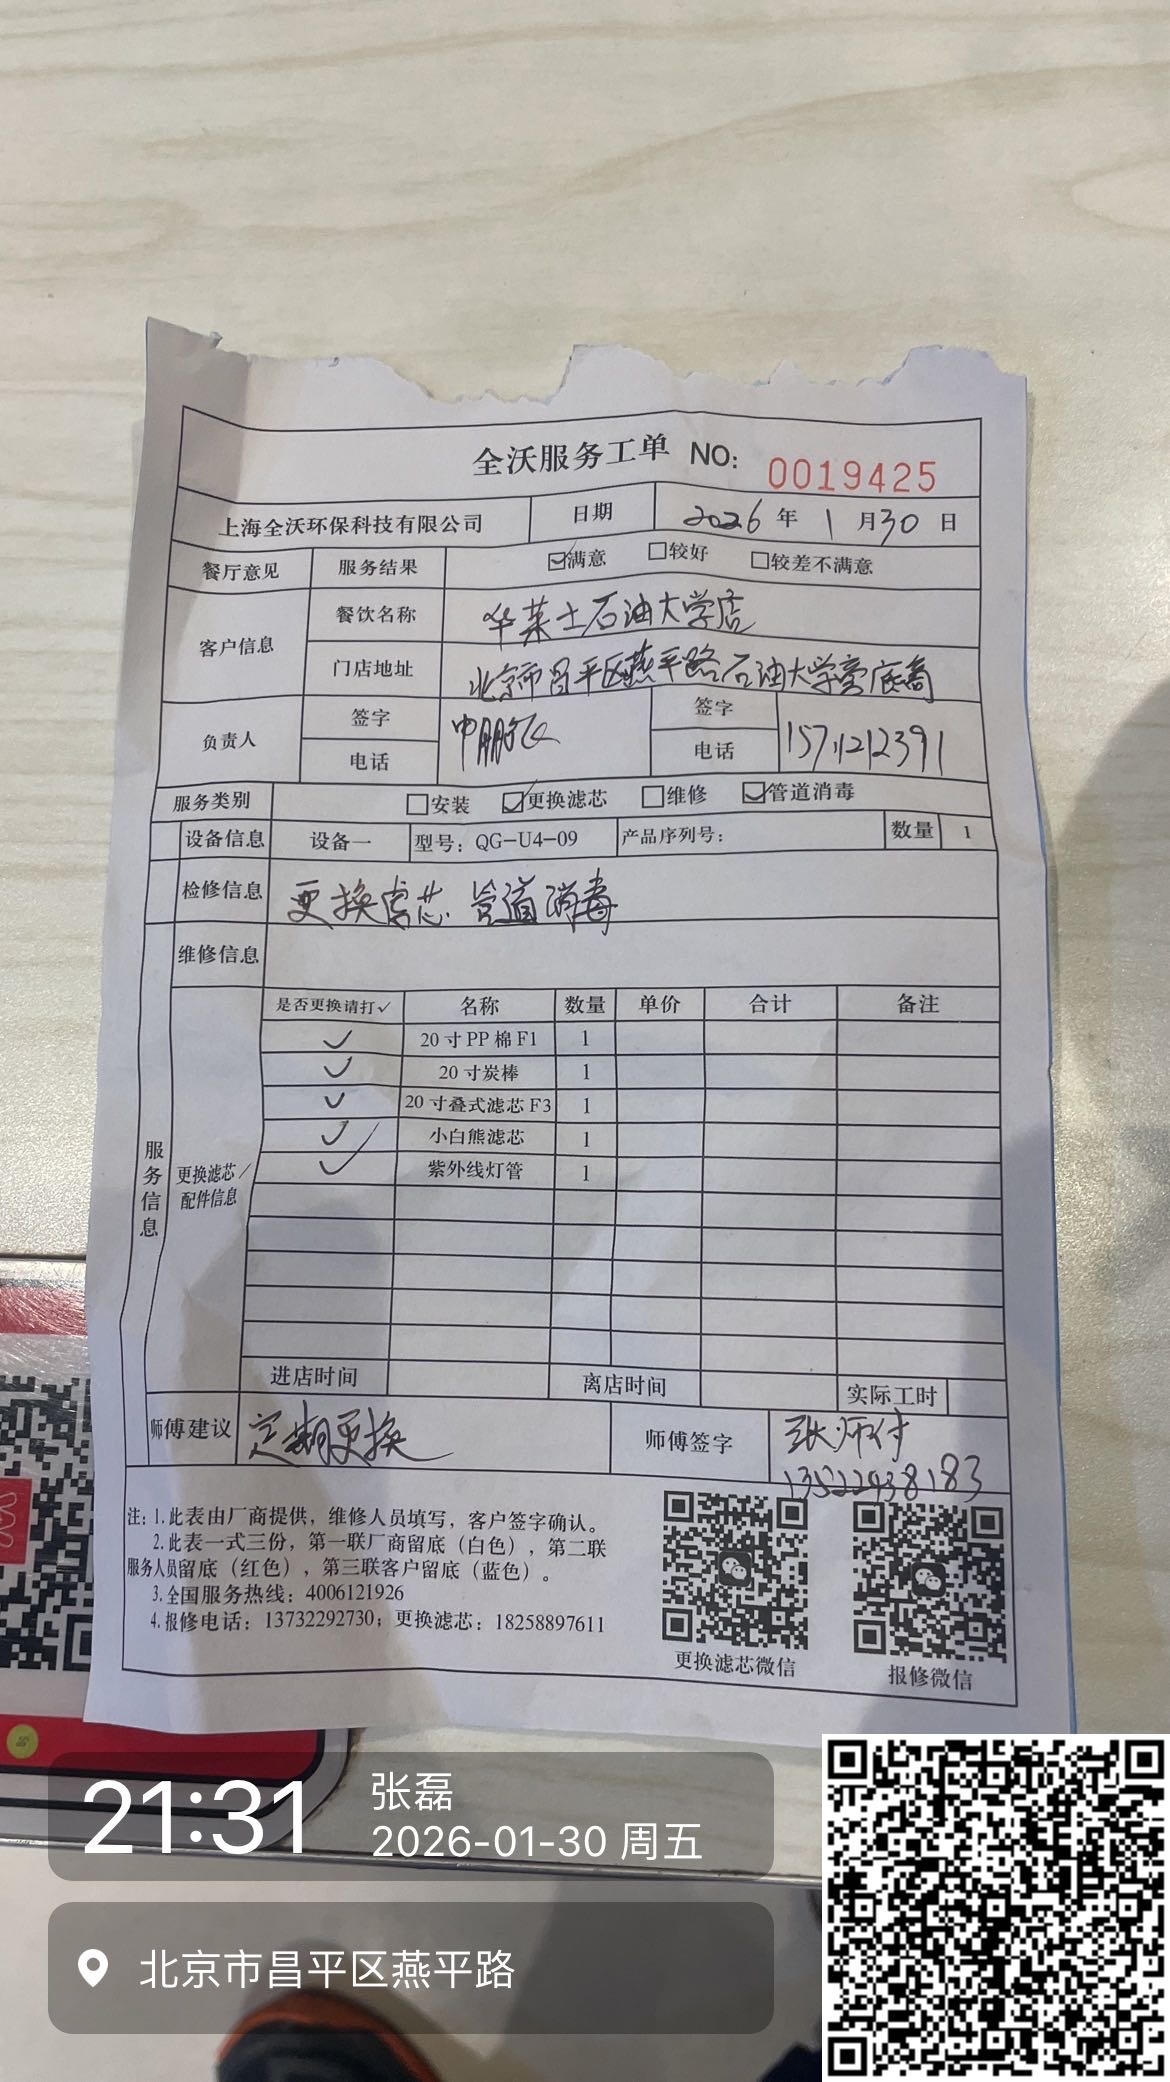 全沃服务工单 NO: 0019425
上海全沃环保科技有限公司 日期 2026 年 1 月 30 日
餐厅意见 服务结果 ☑满意 □较好 □较差不满意
客户信息 餐饮名称 华莱士石油大学店
门店地址 北京市昌平区燕平路石油大学
负责人 签字 申鹏飞 签字
电话 电话 15711212391
服务类别 □安装 ☑更换滤芯 □维修 ☑管道消毒
设备信息 设备一 型号：QG-U4-09 产品序列号： 数量 1
检修信息 更换滤芯 管道消毒
维修信息
服务信息
更换滤芯/配件信息
是否更换请打✓ 名称 数量 单价 合计 备注
✓ 20寸PP棉F1 1
✓ 20寸炭棒 1
✓ 20寸叠式滤芯F3 1
✓ 小白熊滤芯 1
✓ 紫外线灯管 1
进店时间 离店时间 实际工时
师傅建议 定期更换 师傅签字 张师付
13522438183
注：1.此表由厂商提供，维修人员填写，客户签字确认。
2.此表一式三份，第一联厂商留底（白色），第二联
服务人员留底（红色），第三联客户留底（蓝色）。
3.全国服务热线：4006121926
4.报修电话：13732292730；更换滤芯：18258897611
更换滤芯微信 报修微信
21:31 张磊
2026-01-30 周五
北京市昌平区燕平路